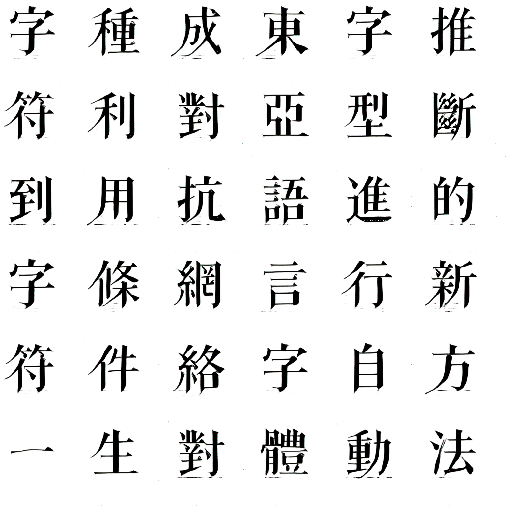 字符到字符一
種利用條件生
成對抗網絡對
東亞語言字體
字型進行自動
推斷的新方法